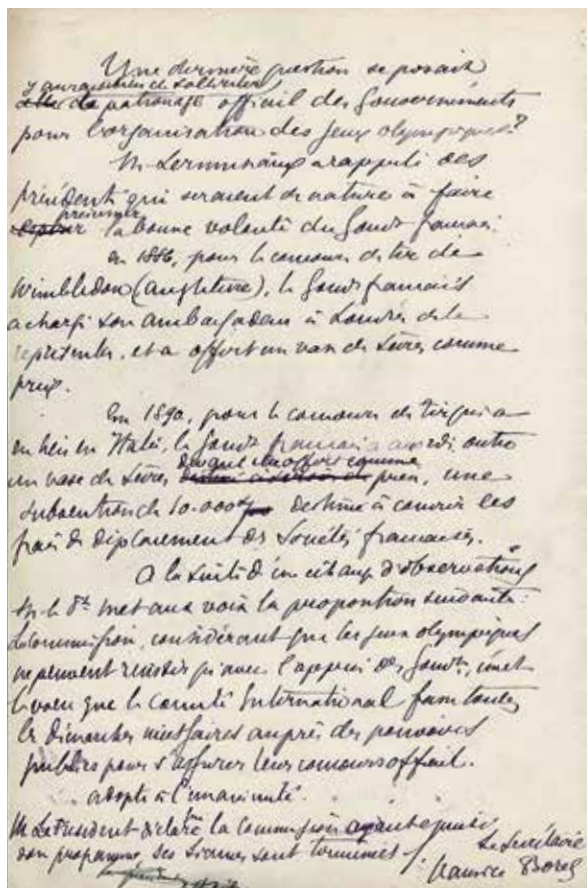 Une dernière question se posait
y aurait-il lieu de solliciter
le patronage officiel des Gouvernements
pour l'organisation des jeux olympiques?
M. Lerminiaux a rappelé des
précédents qui seraient de nature à faire
présumer la bonne volonté du Gouvt français.
en 1886, pour le concours de tir de
Wimbledon (Angleterre), le Gouvt français
a chargé son ambassadeur à Londres de le
représenter, et a offert un vase de Sèvres comme
prix.
En 1890, pour le concours de tir qui a
eu lieu en Italie, le Gouvt français a accordé, outre
un vase de Sèvres offert comme
prix, une
subvention de 10.000 destinée à couvrir les
frais de déplacement des Sociétés françaises.
A la suite d'un échange d'observations
M. le Pt met aux voix la proposition suivante:
La Commission, considérant que les jeux olympiques
ne peuvent réussir qu'avec l'appui des Gouvts, émet
le voeu que le Comité International fasse toutes
les démarches nécessaires auprès des pouvoirs
publics pour s'assurer leur concours officiel.
adopté à l'unanimité.
M. Le Président déclare la Commission ayant épuisé
son programme, ses séances sont terminées
Le Secrétaire
Maurice Borel